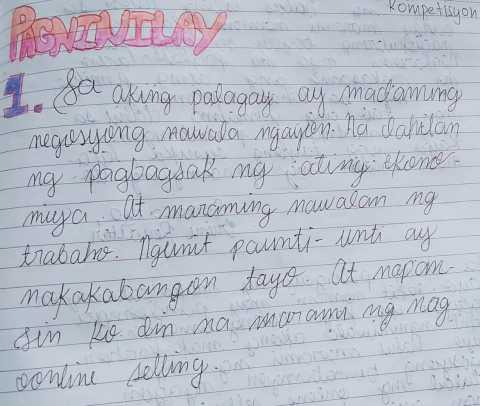 Kompetisyon
PAGNINILAY
1. Sa aking palagay ay madaming
negosyong nawala ngayon. Na dahilan
ng pagbagsak ng ating ekono-
miya. At maraming nawalan ng
trabaho. Ngunit paunti-unti ay
makakabangon tayo. At napan-
sin ko din na marami ng nag
oonline selling.